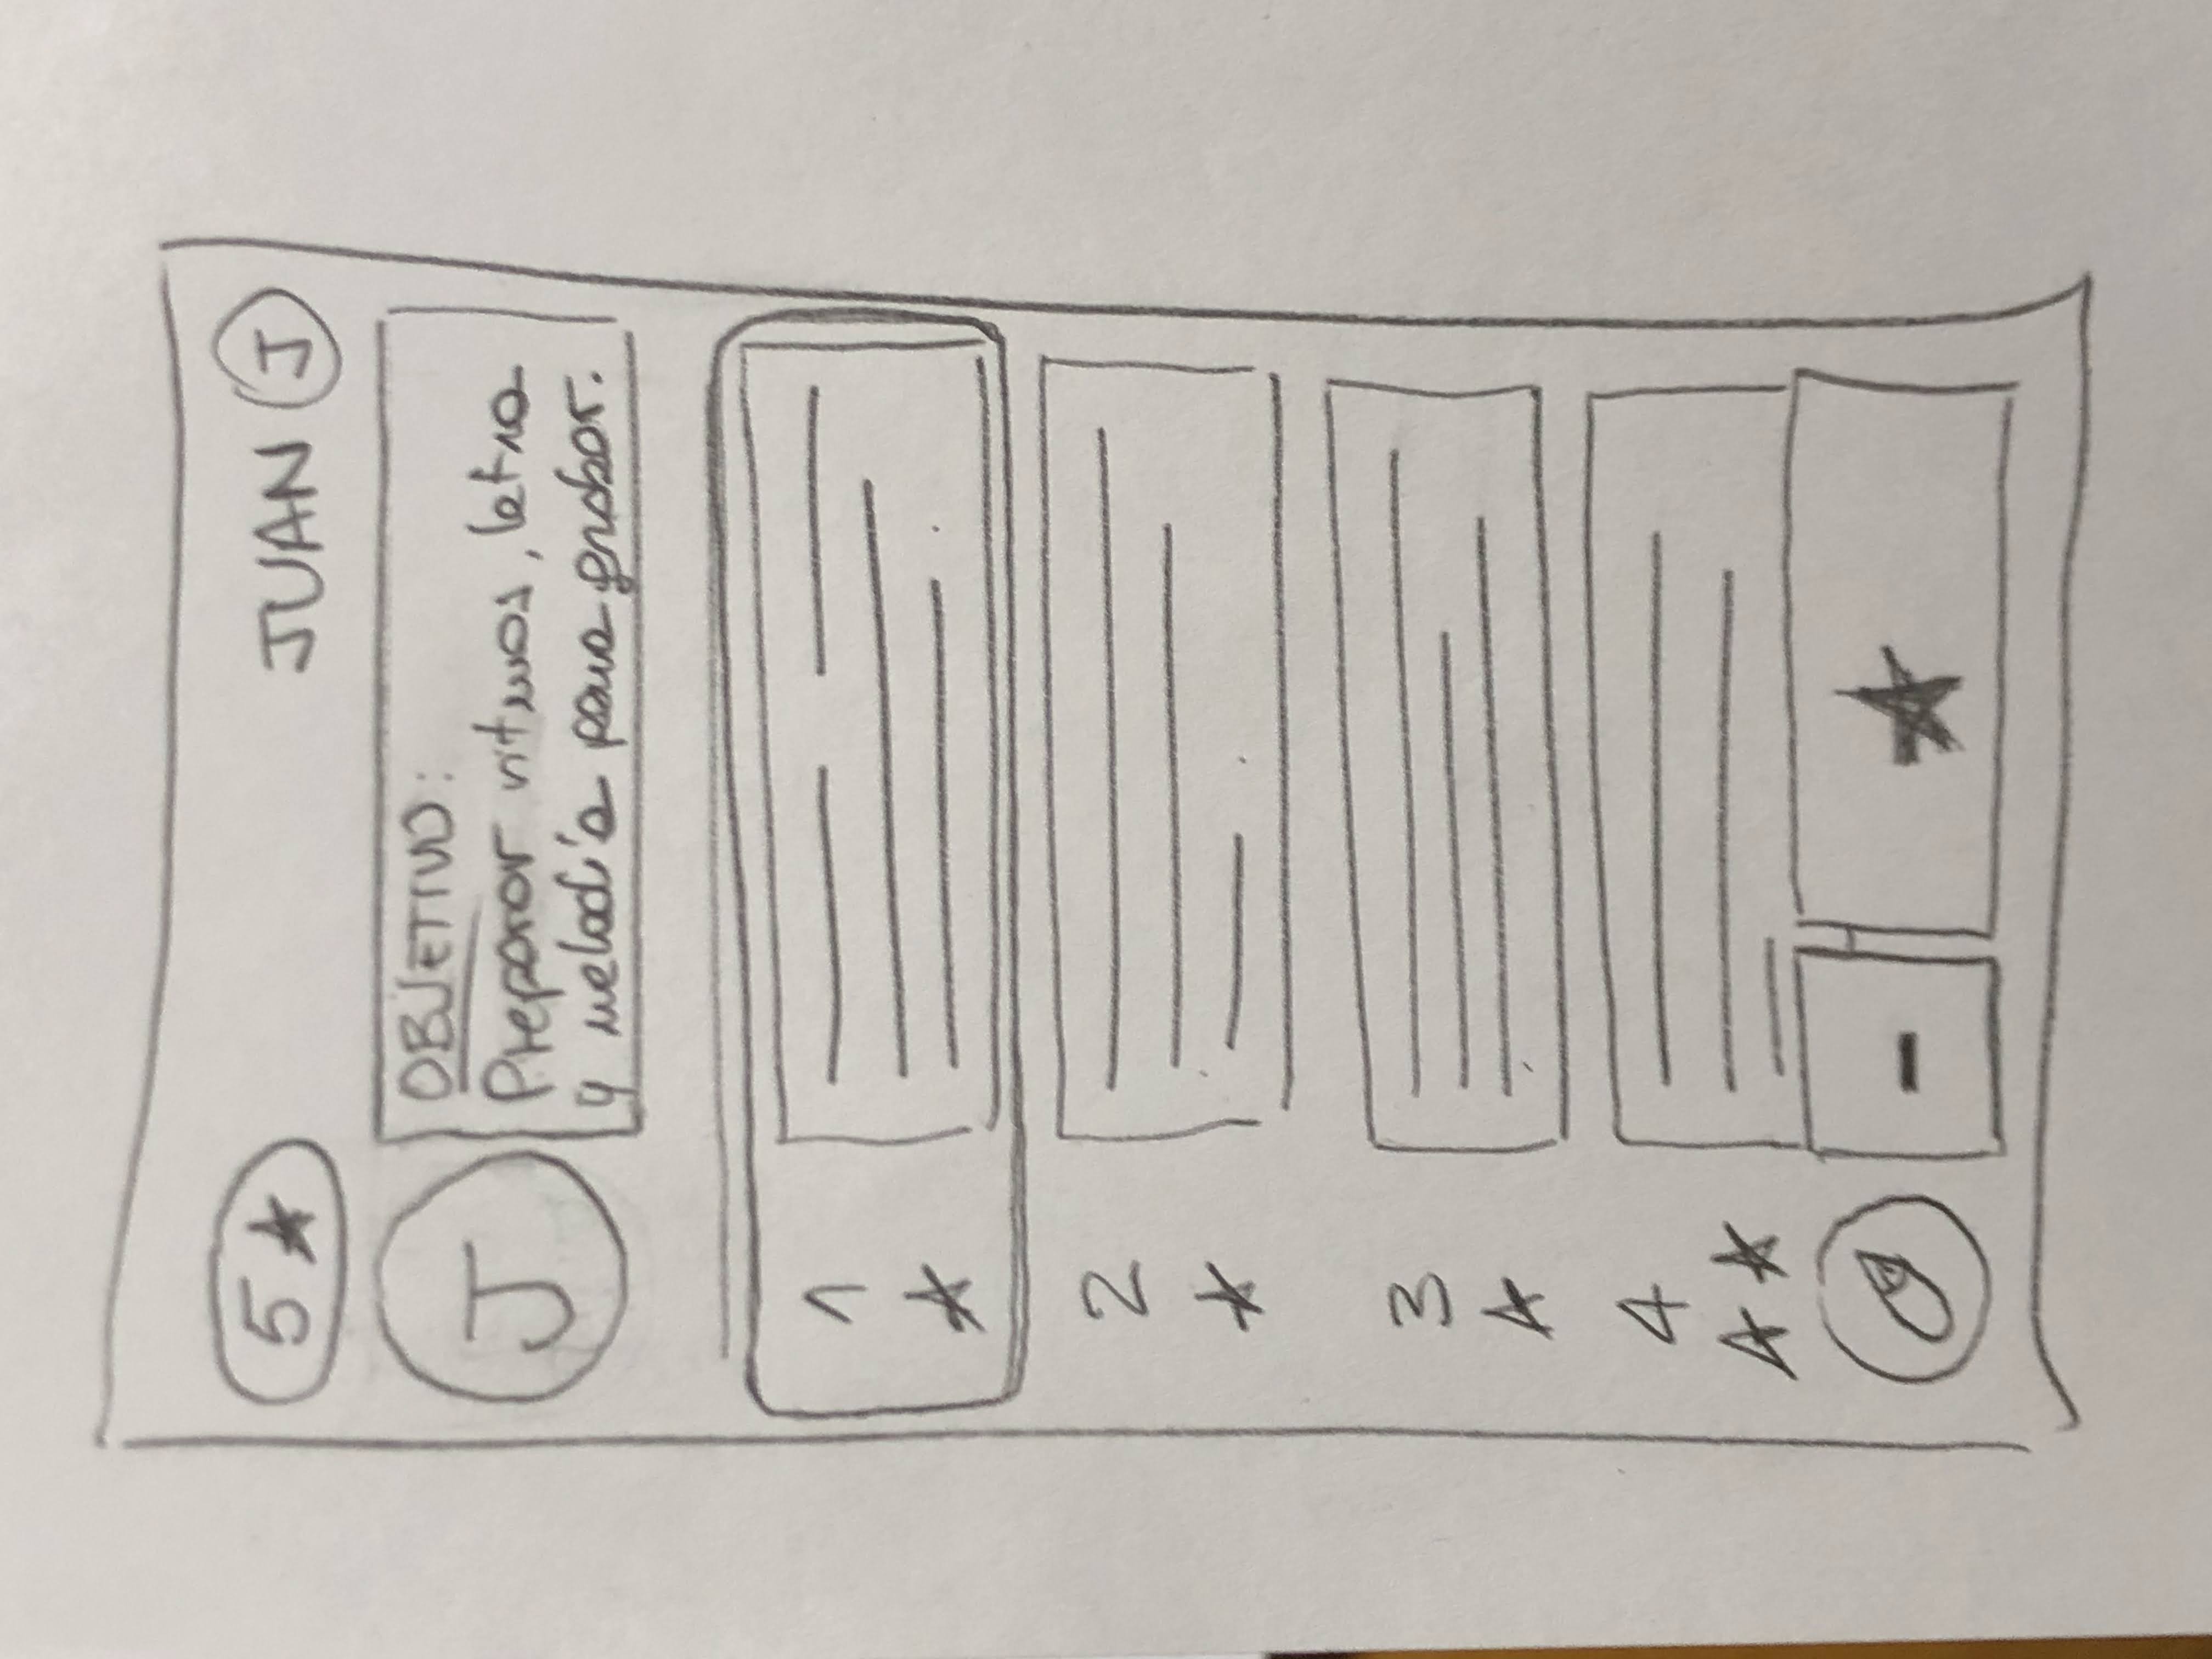 5 ★
JUAN J
J
OBJETIVO:
Preparar ritmos, letra
y melodía para grabar.
1
★
2
★
3
★
4
★ ★
-
★